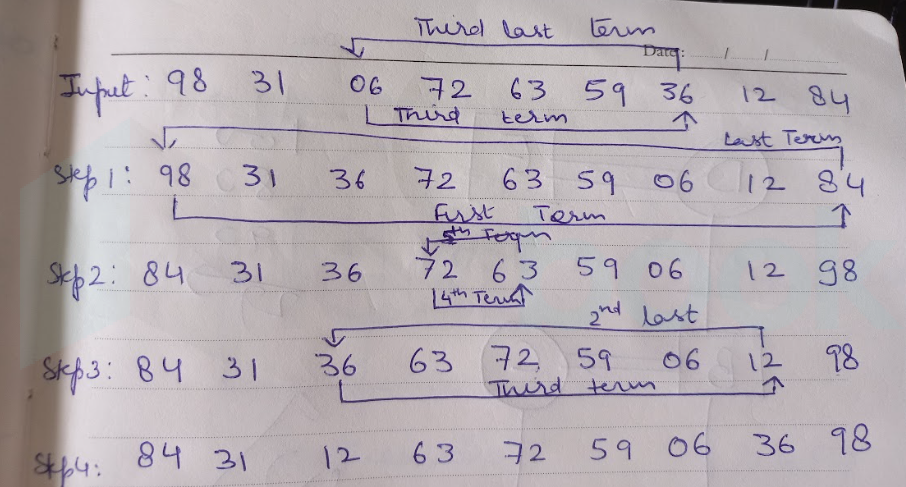 Third last term
Date: / /
Input: 98 31 06 72 63 59 36 12 84
Third term
Last Term
Step 1: 98 31 36 72 63 59 06 12 84
First Term
5th Term
Step 2: 84 31 36 72 63 59 06 12 98
4th Term
2nd last
Step 3: 84 31 36 63 72 59 06 12 98
Third term
Step 4: 84 31 12 63 72 59 06 36 98